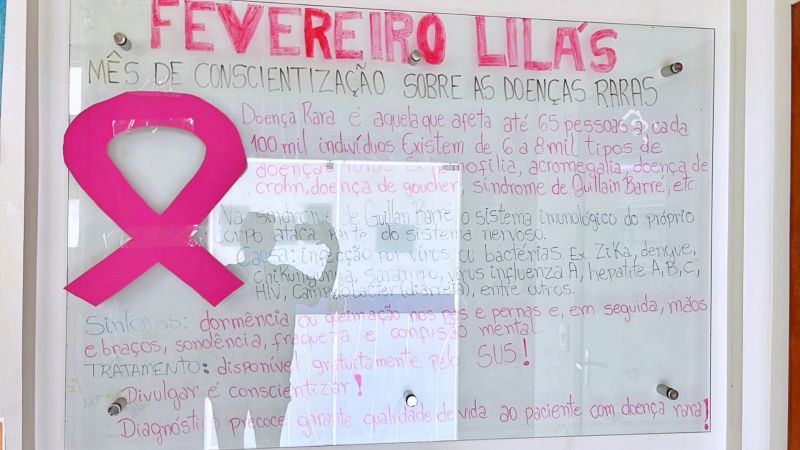 FEVEREIRO LILÁS
MÊS DE CONSCIENTIZAÇÃO SOBRE AS DOENÇAS RARAS
Doença Rara é aquela que afeta até 65 pessoas a cada
100 mil indivíduos. Existem de 6 a 8 mil tipos de
doença raras Ex: hemofilia, acromegalia, doença de
crohn, doença de goucher, síndrome de Guillain Barre, etc.
Na síndrome de Guillan Barre o sistema imunológico do próprio
corpo ataca parte do sistema nervoso.
Causa: infecção por vírus ou bactérias. Ex: Zika, dengue,
chikungunya, sarampo, vírus influenza A, hepatite A, B, C,
HIV, Campylobacter (diarreia), entre outros.
Sintomas: dormência ou queimação nos pés e pernas e, em seguida, mãos
e braços, sonolência, fraqueza e confusão mental.
TRATAMENTO: disponível gratuitamente pelo SUS!
Divulgar é conscientizar!
Diagnóstico precoce garante qualidade de vida ao paciente com doença rara!